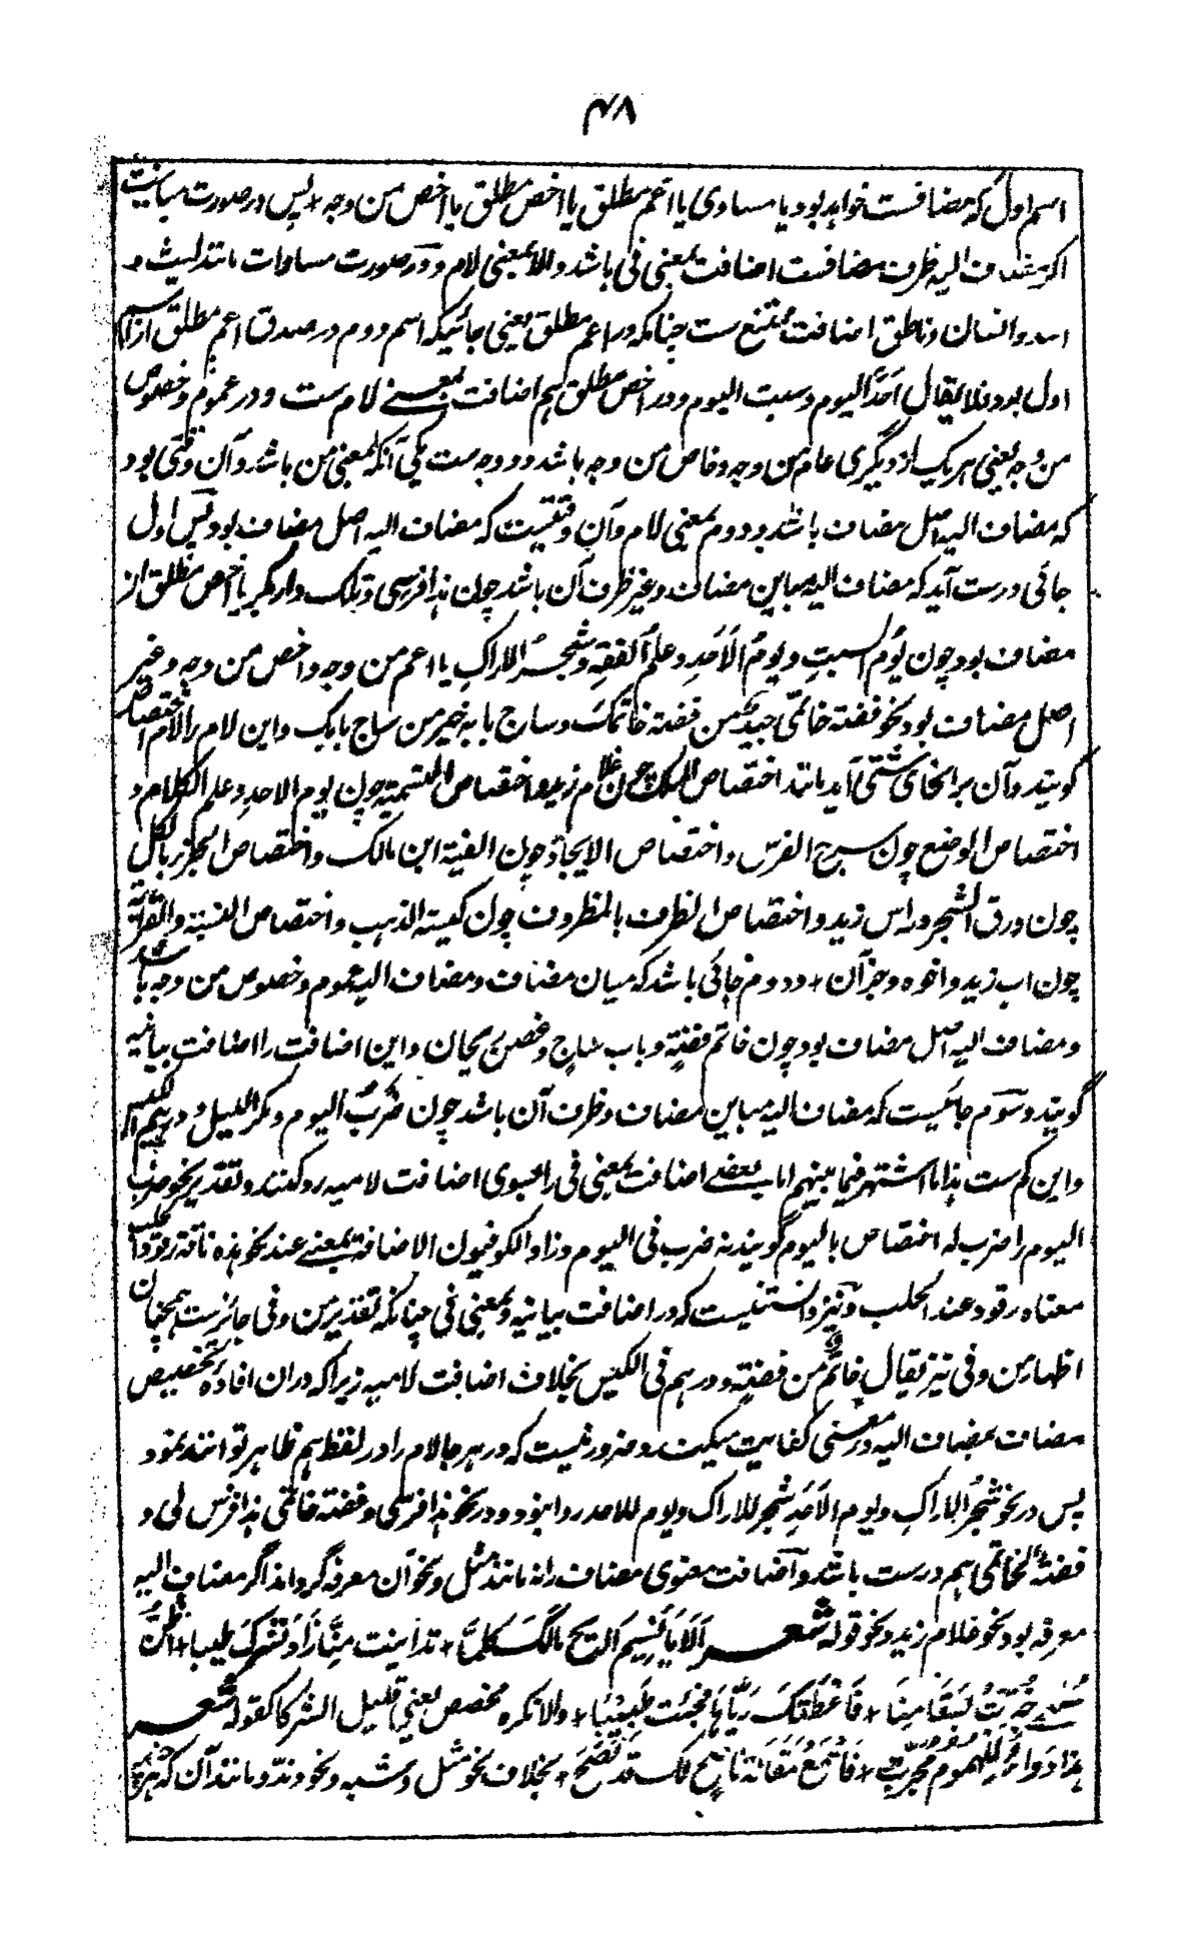 ۴۸
اسم اول که مضافست خواهد بود یا مساوی یا اعم مطلق یا اخص مطلق یا اخص من وجه + پس در صورت مباینت
اگر مضاف الیه ظرف مضافست اضافت بمعنی فی باشد والا بمعنی لام و در صورت مساوات مانند لیث و
اسد و انسان و ناطق اضافت ممتنع ست چنانکه در اعم مطلق یعنی جائیکه اسم دوم در صدق اعم مطلق از اسم
اول بود فلا یقال اَحَدُ الیوم و سبت الیوم و در اخص مطلق هم اضافت بمعنے لام ست و در عموم و خصوص
من وجه یعنی هر یک از دیگری عام من وجه و خاص من وجه باشد دو وجه ست یکی آنکه بمعنی من باشد و آن وقتی بود
که مضاف الیه اصل مضاف باشد و دوم بمعنی لام و آن وقتیست که مضاف الیه اصل مضاف بود پس اول
جائی درست آید که مضاف الیه مباین مضاف و غیر ظرف آن باشد چون هذا فرسی و تلک دارکم یا اخص مطلق از
مضاف بود چون یوم السبتِ و یومُ الاَحَدِ و علمُ الفقهِ و شجرُ الاراکِ یا اعم من وجه و اخص من وجه و غیر
اصل مضاف بود نحو فضة خاتمی جید من فضة خاتمک و ساج بابه خیر من ساج بابک و این لام را لام اختصاص
گویند و آن بر انحای شتّی آید مانند اختصاص الملک چون غلام زید و اختصاص التسمیة چون یوم الاحد و علم الکلام و
اختصاص الوضع چون سرج الفرس و اختصاص الایجاد چون الفیة ابن مالک و اختصاص الجزء بالکل
چون ورق الشجر و راس زید و اختصاص الظرف بالمظروف چون کیسة الذهب و اختصاص النسبة والقرابة
چون اب زید و اخوه و جز آن + و دوم جائی باشد که میان مضاف و مضاف الیه عموم و خصوص من وجه باشد
و مضاف الیه اصل مضاف بود چون خاتم فضةٍ و باب ساج و غصن ریحان و این اضافت را اضافت بیانیه
گویند و سوم جائیست که مضاف الیه مباین مضاف و ظرف آن باشد چون ضربُ الیوم و مکر اللیل و درهم الکیس
و این کم ست هذا ما اشتهر فیما بینهم اما بعضے اضافت بمعنی فی را بسوی اضافت لامیه رد کنند و تقدیر نحو ضرب
الیوم را ضرب له اختصاص بالیوم گویند نه ضرب فی الیوم و زاد الکوفیون الاضافة بمعنے عند نحو هذه ناقة رقود الحلب
معناه رقود عند الحلب و نیز دانستنیست که در اضافت بیانیه و بمعنی فی چنانکه تقدیر من و فی جائز ست همچنان
اظهار من و فی نیز یقال خاتم من فضةٍ و درهم فی الکیس بخلاف اضافت لامیه زیرا که دران افادهٔ تخصیص
مضاف بمضاف الیه در معنی کفایت میکند و ضرور نیست که در هر جا لام را در لفظ هم ظاهر توانند نمود
پس در نحو شجرُ الاراکِ و یوم الاَحَدِ شجر للاراک و یوم للاحد روا نبود و در نحو هذا فرسی و فضة خاتمی هذا فرس لی و
فضةٌ لخاتمی هم درست باشد و اضافت معنوی مضاف را نه مانند مثل و نحو آن معرفه گرداند اگر مضاف الیه
معرفه بود نحو غلام زید و نحو قوله شعر اَلَا یَا نَسِیمَ الریح مالَکَ کلمّا + تدانیت مِنَّا زَادَ نَشرُکَ طیبا + اَظُنُّ
سُلَیمٰی خُبِّرَتْ بِسَقَامِنَا + فَاَعْطَتْکَ رَیَّاهَا فَجِئتَ طَبِیْبًا + والا نکره مخصص یعنی قلیل الشرکا کقوله شعر
هذا دَوَاءٌ لِلهموم مجرّب + فَاسْمَع مَقَالَة ناصح لک قد نَصَحَ + بخلاف نحو مثل و شبه و نحو و ندّ و مانند آن که هر چند